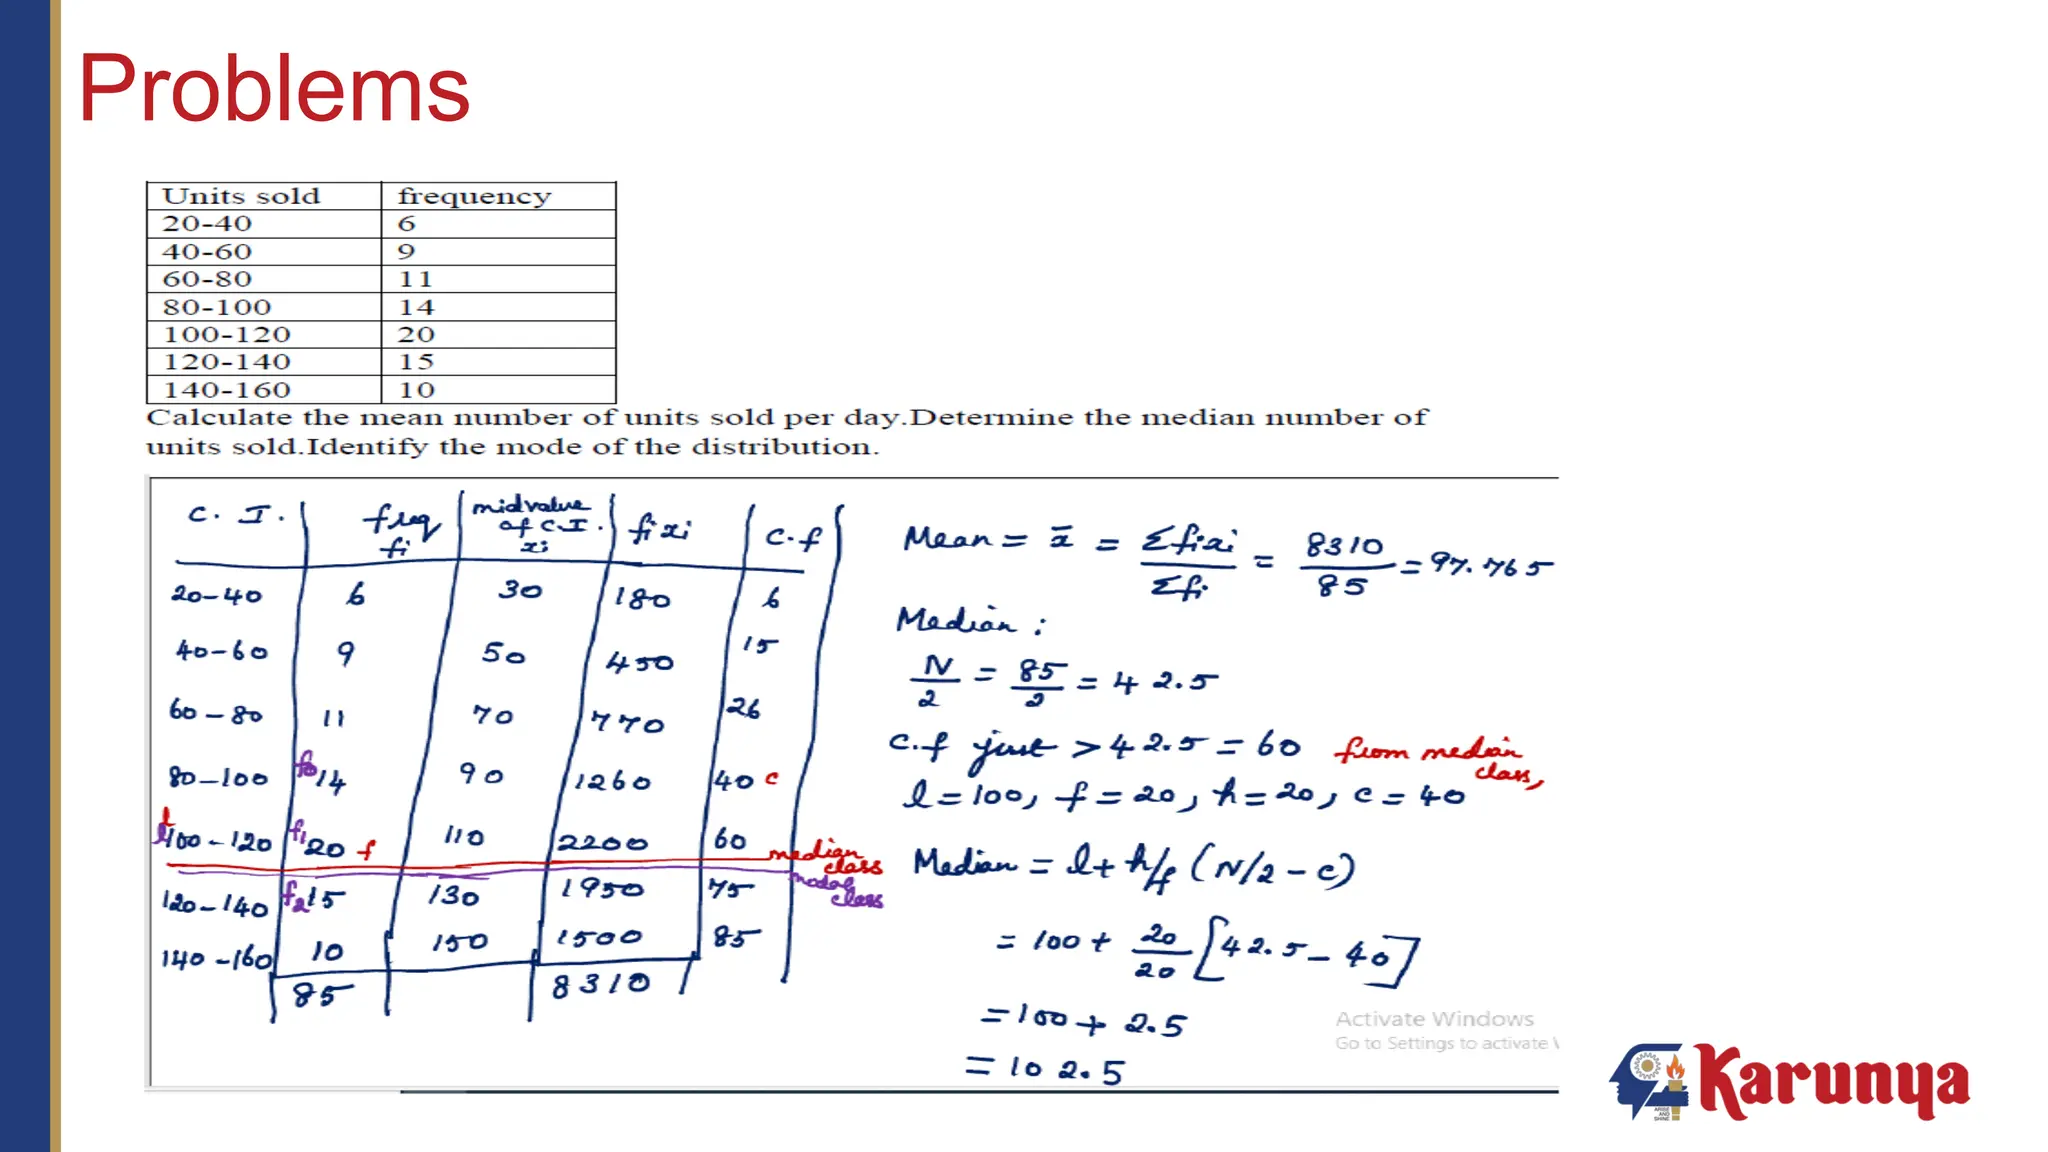 Problems
Units sold frequency
20-40 6
40-60 9
60-80 11
80-100 14
100-120 20
120-140 15
140-160 10
Calculate the mean number of units sold per day.Determine the median number of
units sold.Identify the mode of the distribution.
C.I. freq fi midvalue of C.I. xi fixi c.f
20-40 6 30 180 6
40-60 9 50 450 15
60-80 11 70 770 26
80-100 f0 14 90 1260 40 c
l 100-120 f1 20 f 110 2200 60 median class
modal class
120-140 f2 15 130 1950 75
140-160 10 150 1500 85
85 8310
Mean = x̄ = Σfixi / Σfi = 8310 / 85 = 97.765
Median :
N/2 = 85/2 = 42.5
c.f just > 42.5 = 60 from median class,
l = 100, f = 20, h = 20, c = 40
Median = l + h/f (N/2 - c)
= 100 + 20/20 [42.5 - 40]
= 100 + 2.5
= 102.5
Activate Windows
Go to Settings to activate
ARISE
AND
SHINE
Karunya